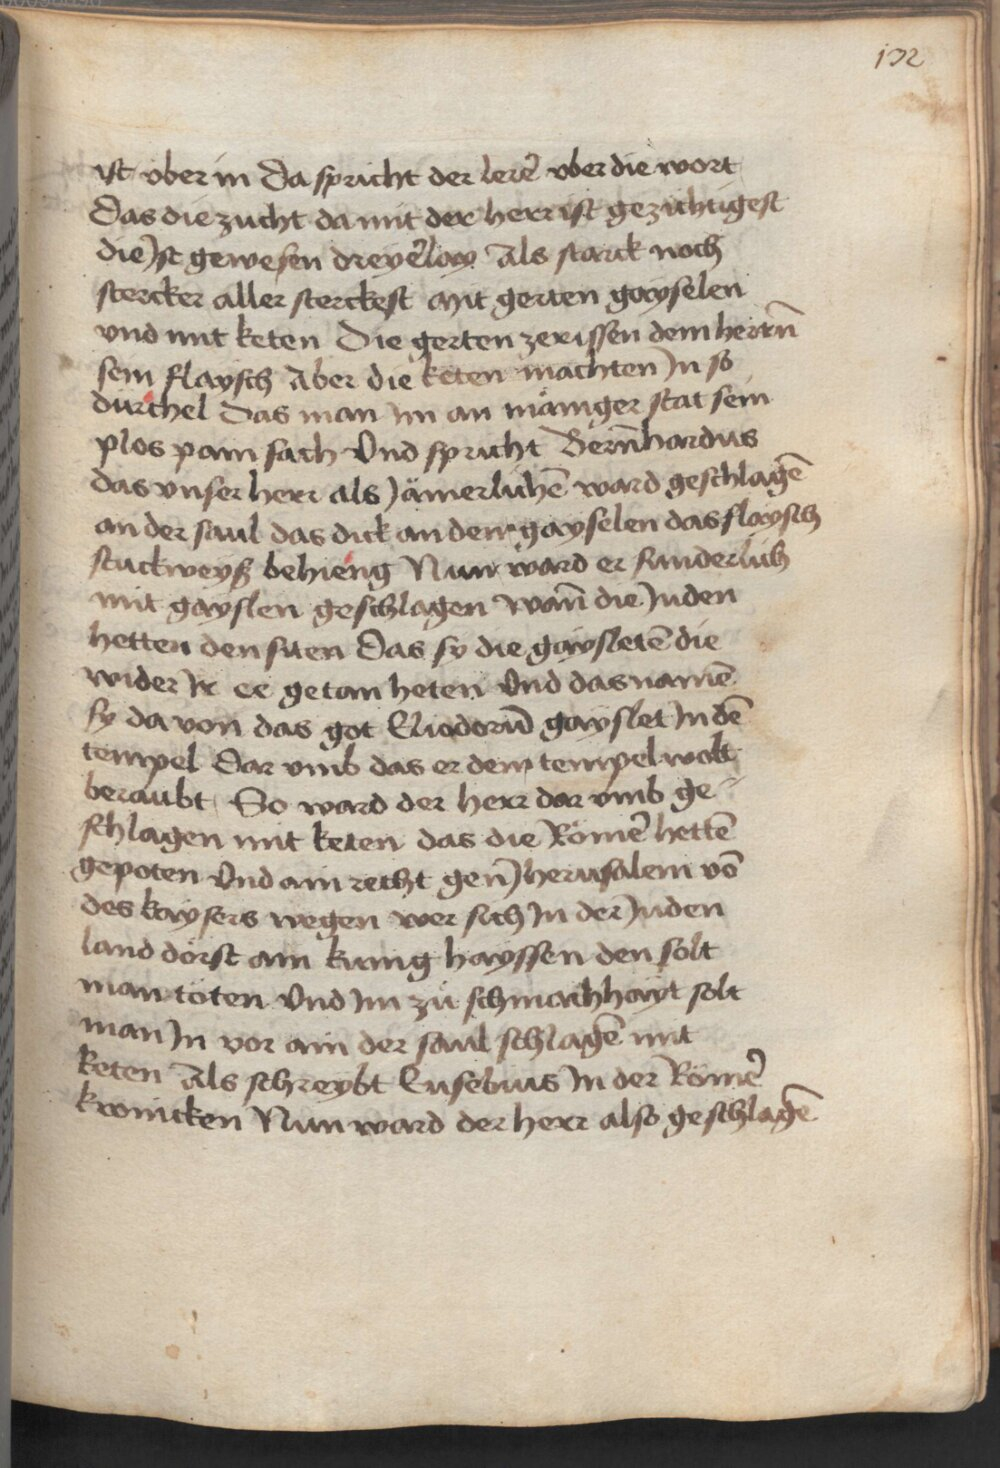 132
ist vber in Da spricht der lerer̄ vber die wort
Das die zucht da mit der herr ist gezüchtigest
die Ist gewesen dreyer̄lay Als starck noch
stercker aller sterckest mit gerten gayselen
vnd mit keten Die gerten zerissen dem herrn̄
sein flaysch Aber die keten machten In so
dürchel Das man im an mäniger stat sein
plos pain sach Vnd spricht Bern̄hardus
das vnser herr als Jämerlichē ward geschlagē
an der saul das dick an den gayselen das flaysch
stuckweyß behieng Nun ward er sunderlich
mit gayslen geschlagen wan̄ die Juden
hetten den siten Das sy die gaysletē die
wider Ir ee getan heten Vnd das namē
sy da von das got Eliodorū gayslet In dē
tempel Dar vmb das er dem tempel wolt
beraubt So ward der herr dar vmb ge-
schlagen mit keten das die Römer̄ hettē
gepoten Vnd ain recht gen̄ Jherusalem vō
des kaysers wegen wer sich In der Juden
land dörst ain kunig hayssen den solt
man töten Vnd Im zü schmachhayt solt
man In vor ain der saul schlagē mit
keten Als schreybt Eusebius In der Römer̄
kronicken Nun ward der herr also geschlagē